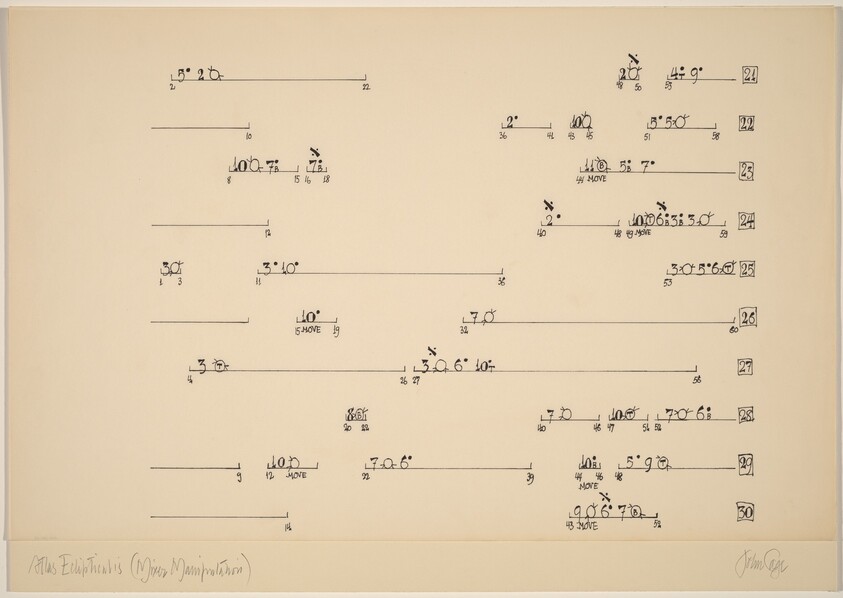 5 2 48 2 50 4 9 21
2 22 53
2 10 5 5 22
10 36 41 43 45 51 58
10 7 7 11 5 7 23
8 15 16 18 44 MOVE
2 10 6 3 3 24
12 40 48 49 MOVE 59
3 3 10 3 5 6 25
1 3 11 36 53
10 7 26
15 MOVE 19 32 60
3 3 6 10 27
4 26 27 56
8 7 10 7 6 28
20 22 40 46 47 51 52
10 7 6 10 5 9 29
9 12 MOVE 22 39 44 46 48
MOVE
9 6 7 30
14 43 MOVE 52
Atlas Eclipticalis (Mixer Manipulation) John Cage